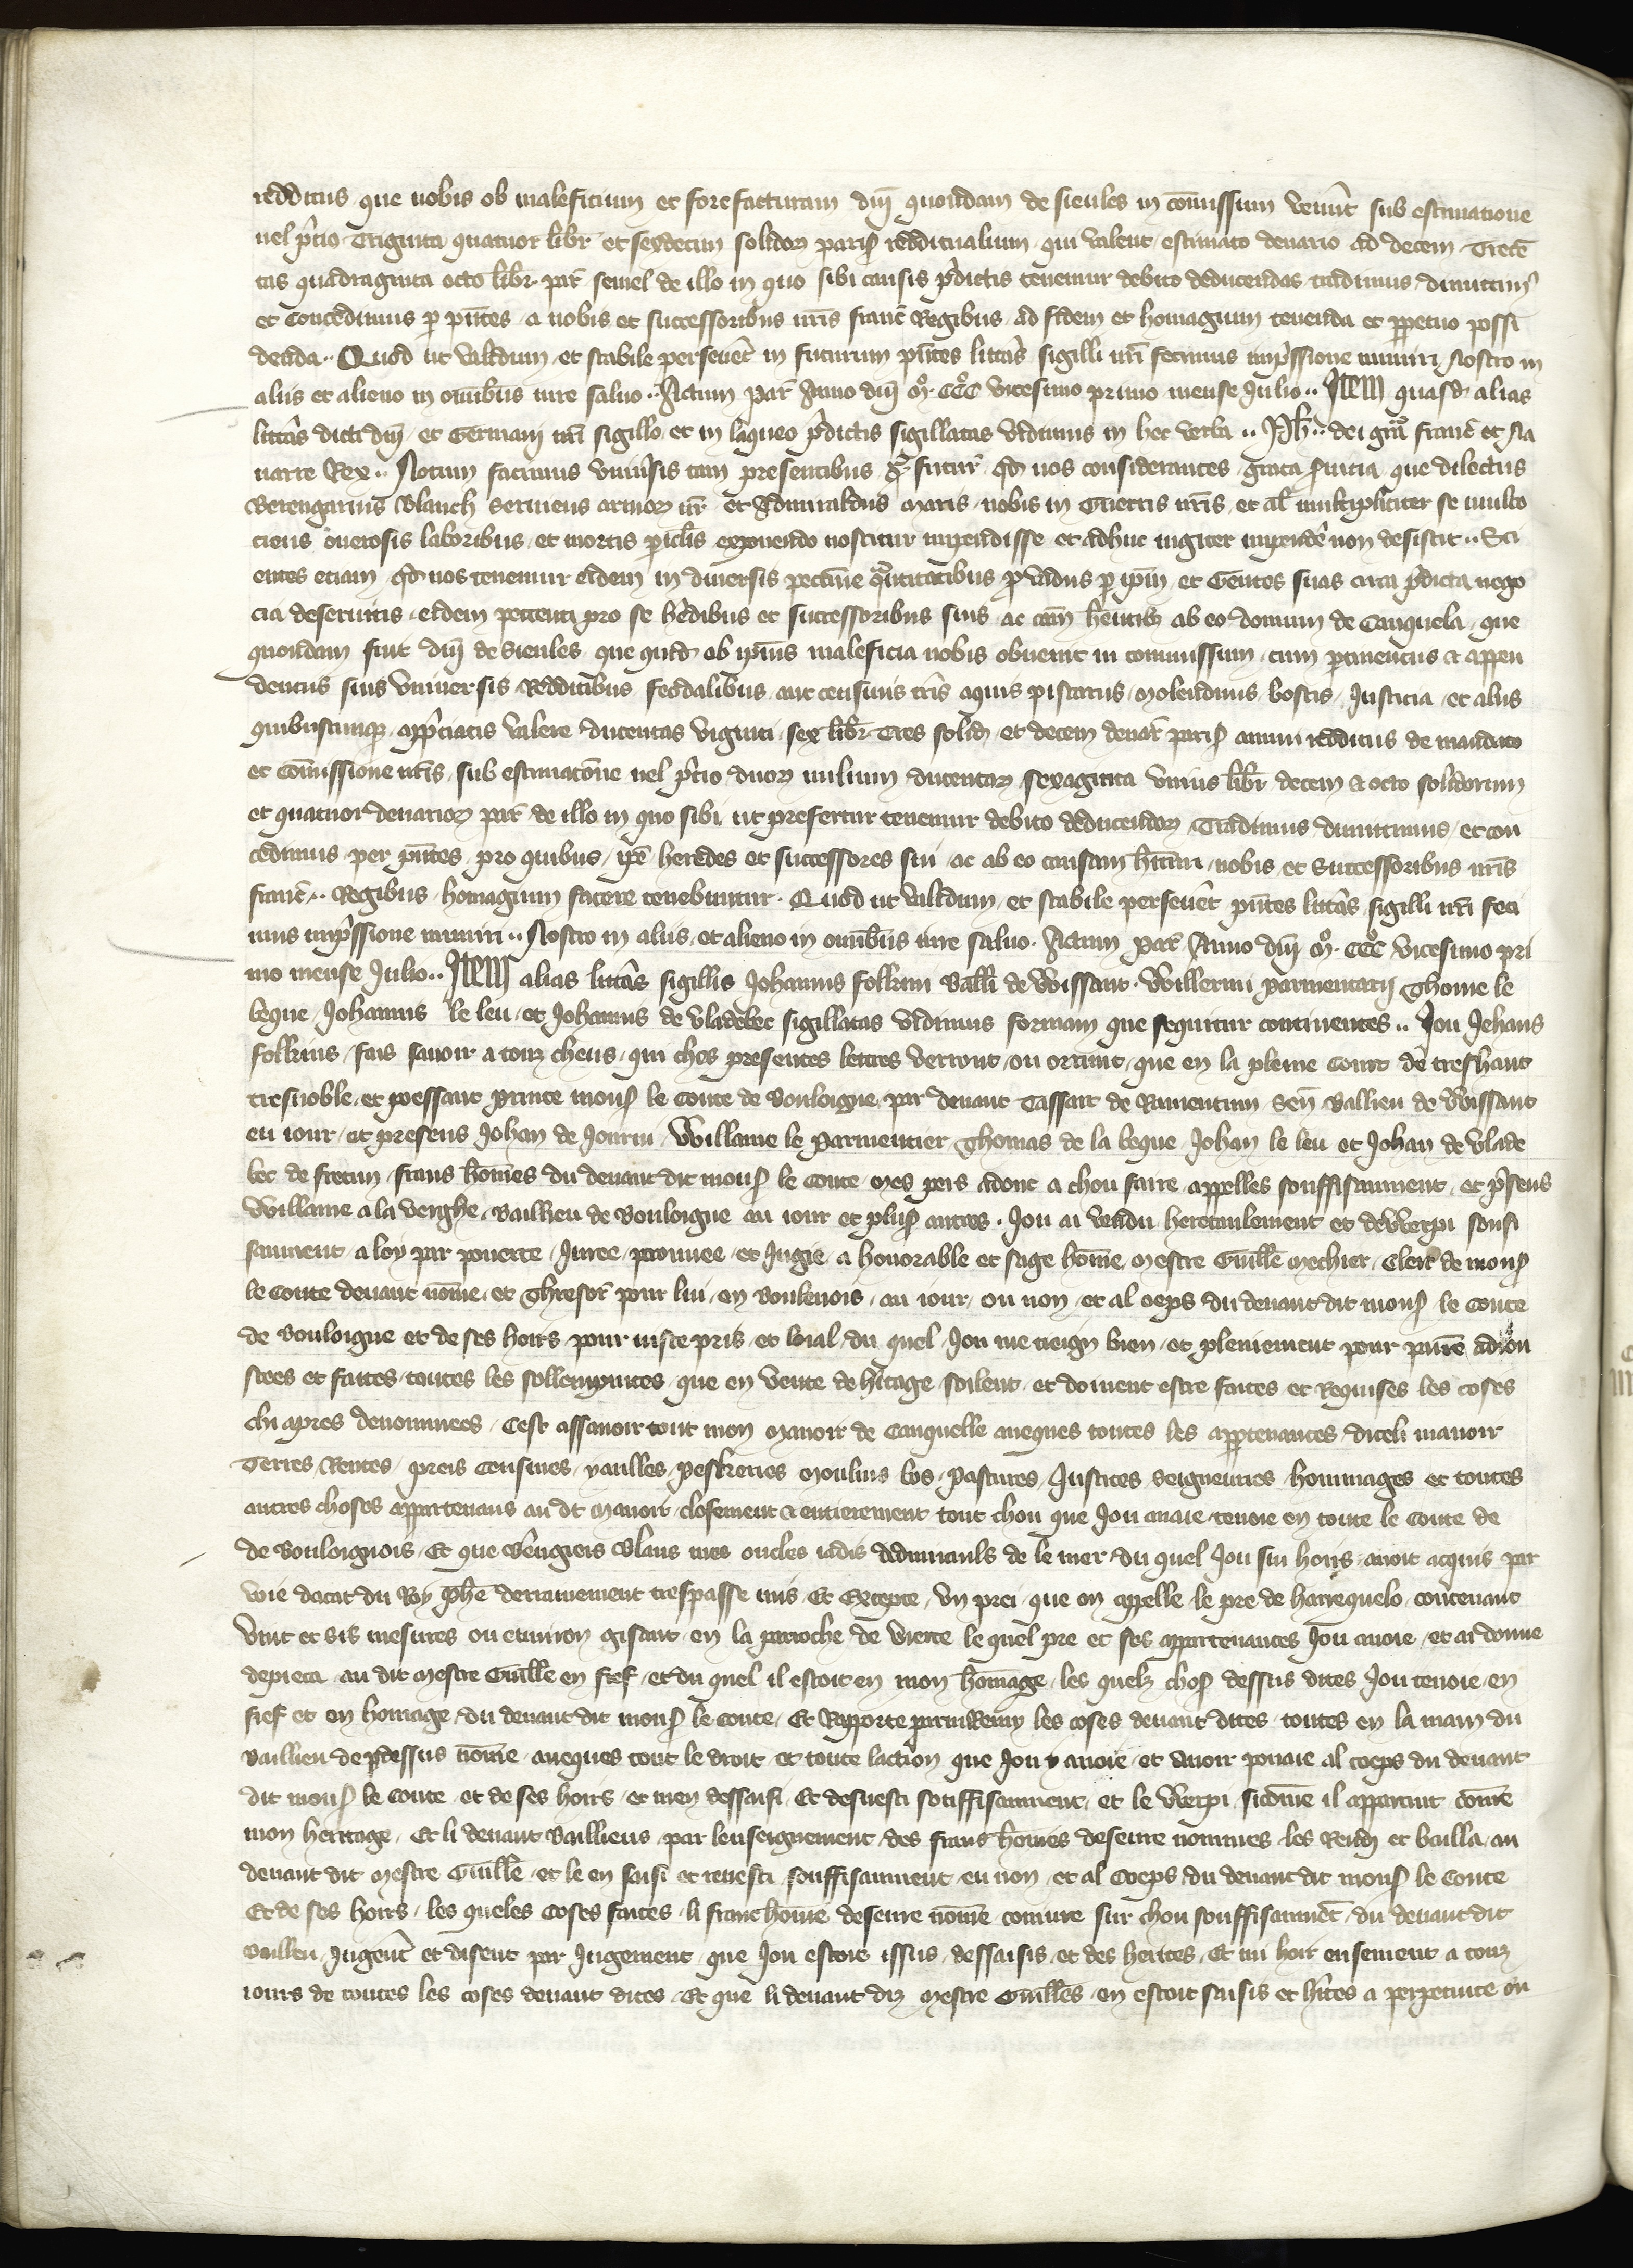 redditus que nobis ob maleficium et forefacturam dn̄i quondam de sieules in co̅missum venerūt sub estimatione
uel p̄cio Triginta quatuor libr et sexdecim solidoꝝ parisꝭ reddituaIium qui valent estimato denario ad decem Trecē
tas quadraginta octo libr par̄ semel de illo in quo sibi causis p̄dictis tenemur debito deducendas tradimus dimittimꝰ
et Concedimus ꝑ p̄ntes a nobis et successoribus nr̄is franc̄ Regibus ad fidem et homagium tenenda et ꝑpetuo possi
denda ·· Quod ut validum et stabile perseuet̄ in futurum p̄ntes litt̄as sigilli nr̄i fecimus imp̄ssione muniri Nostro in
aliis et alieno in om̄ibus iure saluo ·· Actum Par̄ Anno dn̄i mͦ · CCCͦ vicesimo primo mense Iulio ·· Item quasd̄ alias
litt̄as dicti dn̄i et Germani nr̄i sigillo et in laqueo p̄dictis sigillatas vidimus in hec verba ·· Ph̄ ·· dei gr̄a franc̄ et Na
uarre Rex ·· Notum facimus vniu̅sis tam presentibus q̄ futur̄ qd̄ nos considerantes grata s̄uicia que dilectus
Berengarius Blanch seruiens armoꝝ nr̄ et Admiraldus maris nobis in Guerris nr̄is et al̄ multipliciter se multo
ciens onerosis laboribus et mortis pic̄lis exponendo noscitur impendisse et adhuc iugiter impendē non desistit ·· Sci
entes etiam qd̄ nos tenemur eidem in diuersis peccūne quātitatibus ꝓ vadiis ꝑ ip̄m et Gentes suas circa p̄dicta nego
cia deseruitis eidem petenti pro se h̄edibus et successoribus suis ac cām h̄entibꝫ ab eo domum de Canquela que
quondam fuit dn̄i de Sieules que quid̄ ob ip̄ius maleficia nobis obuenit in commissum cum ꝑtinentiis et appen
dentiis suis vniuersis Redditibus feodalibus aut censiuis tr̄is aquis piscariis molendinis boscis Iusticia et aliis
quibuscumqꝫ app̄ciatis valere ducentas viginti sex libr Tres solid̄ et decem denar̄ parisꝭ annui redditus de mandato
et co̅missione nr̄is sub estimatōne uel p̄cio duoꝝ milium ducentaꝝ sexaginta vnius libr̄ decem et octo solidorum
et quatuor denarioꝝ par̄ de illo in quo sibi ut prefertur tenemur debito deducendoꝝ Tradimus dimittimus et con
cedimus per p̄ntes pro quibus ip̄e heredes et successores sui ac ab eo causam h̄ituri nobis et Successoribus nr̄is
franc̄ ·· Regibus homagium facere tenebuntur · Quod ut validum et stabile perseuet̄ p̄ntes litt̄as sigilli nr̄i feci
mus imp̄ssione muniri ·· Nostro in aliis et alieno in om̄ibus iure saluo · Actum Par̄ Anno dn̄i mͦ · CCCͦ vicesimo pri
mo mense Iulio ·· Item alias litt̄as sigillis Iohannis folkini Balli de Wissant · Willermi parmentarij Thome le
beque Iohannis le leu et Iohannis de vladebec sigillatas vidimus formam que sequitur continentes ·· Iou Iehans
folkins fais sauoir a touz cheus qui ches presentes lettres verront ou orrunt que en la pleine Court de treshaut
tresnoble et poessant prince monsꝭ le Conte de Bouloigne par deuant Tassart de Rumentum sen̄ Ballieu de Wissant
eu iour et presens Iohan de Iourni Willame le Parmentier Thomas de la beque Iohan le leu et Iohan de vlade
bec de fretun frans ho̅mes du deuant dit monsꝭ le Conte mes pers adont a chou faire appelles souffisaument et p̄sens
Willame a la verghe Baillieu de Bouloigne au iour et plusꝭ autres · Iou ai vendu heretaulement et dewerpi soufi
saument a loy par pouerte Iuree prouuee et Iugie a honorable et sage ho̅me mestre Guill̄e mechier Clerc de monsꝭ
le Conte deuant no̅me et Thresor̄ pour lui en Boulenois au iour ou non et al oeps du deuant dit monsꝭ le Conte
de Bouloigne et de ses hoirs pour iuste pris et loial du quel Iou me tieign bien et pleniement pour paiie adiou
stees et faites toutes les sollempnites que en vente de h̄itage soilent et doiuent estre faites et Requises les coses
chi apres denommees Cest assauoir tout mon Manoir de Canquelle aueques toutes les apptenances diceli manoir
Terres Rentes preis Censiues yaulles Peskeries Moulins bos Pastures Iustices seignouries hommages et toutes
autres choses appartenans au dt̄ Manoir closement et entierement tout chou que Iou auaie tenoie en toute le Conte de
de Bouloignois Et que B̄engiers Blans mes oncles iadis Admiraulx de le mer du quel Iou sui hoirs auoit acquis par
voie dacat du Roy Ph̄e derrainement trespasse mis Et Excepte vn prei que on appelle le pre de harrequelo contenant
vint et sis mesures ou enuiron gisant en la parroche de vierre le quel pre et ses appartenances Iou auoie et ai donne
depieca au dit mestre Guill̄e en fief et du quel il estoit en mon ho̅mage les quelz chosꝭ dessus dites Iou tenoie en
fief et en homage du deuant dit monsꝭ le Conte Et Rapporte parmi Remy les coses deuant dites toutes en la main du
Baillieu de p̄dessus no̅me aueques tout le droit et toute laction que Iou y auoie et auoir pouaie al coeps du deuant
dit monsꝭ le Conte et de ses hoirs et men dessaisi Et desuesti souffisaument et le Werpi sico̅me il appartint co̅me
mon heritage Et li deuant Baillieus par lenseignement des frans ho̅mes deseure nommes les Rend̄ et bailla au
deuant dit mestre Guill̄e et le en saisi et reuesti souffisaument eu non et al Coeps du deuant dit monsꝭ le Conte
Et de ses hoirs les queles Coses faites li franc ho̅me deseure no̅me coniure sur chou souffisaumēt du deuant dit
Baillieu Iugent̄ et disent par Iugement que Iou estoie issus dessaisis et des herites Et mi hoir ensement a touz
iours de toutes les coses deuant dites Et que li deuant diz Mestre Guill̄es en estoit saisis et h̄ites a perpetuite ou